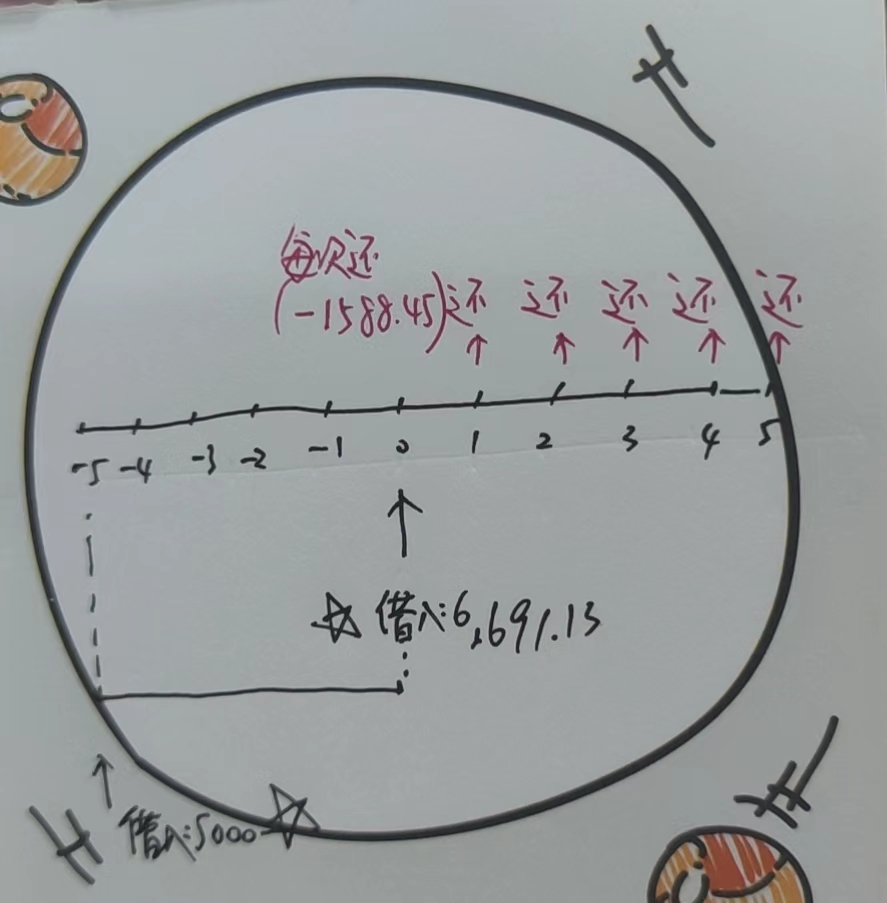 每次还
(-1588.45) 还 还 还 还 还
-5 -4 -3 -2 -1 0 1 2 3 4 5
借入:6,691.13
借入:5000